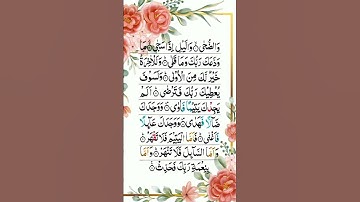 وَالضُّحٰى ۙ وَالَّيْلِ اِذَا سَجٰى ۙ مَا
وَدَّعَكَ رَبُّكَ وَمَا قَلٰى ؕ وَلَلْاٰخِرَةُ
خَيْرٌ لَّكَ مِنَ الْاُوْلٰى ؕ وَلَسَوْفَ
يُعْطِيْكَ رَبُّكَ فَتَرْضٰى ؕ اَلَمْ
يَجِدْكَ يَتِيْمًا فَاٰوٰى ۪ وَوَجَدَكَ
ضَآلًّا فَهَدٰى ۪ وَوَجَدَكَ عَآئِلًا
فَاَغْنٰى ؕ فَاَمَّا الْيَتِيْمَ فَلَا تَقْهَرْ ؕ
وَاَمَّا السَّآئِلَ فَلَا تَنْهَرْ ؕ وَاَمَّا
بِنِعْمَةِ رَبِّكَ فَحَدِّثْ